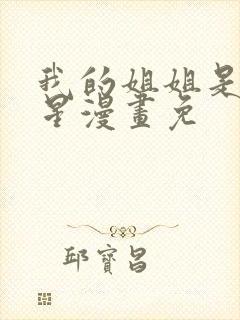 我的姐姐是
星漫畫免
邱寶昌